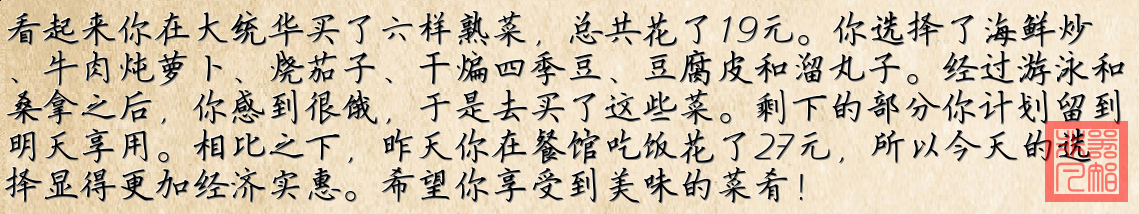 看起来你在大统华买了六样熟菜，总共花了19元。你选择了海鲜炒
、牛肉炖萝卜、烧茄子、干煸四季豆、豆腐皮和溜丸子。经过游泳和
桑拿之后，你感到很饿，于是去买了这些菜。剩下的部分你计划留到
明天享用。相比之下，昨天你在餐馆吃饭花了27元，所以今天的选
择显得更加经济实惠。希望你享受到美味的菜肴！